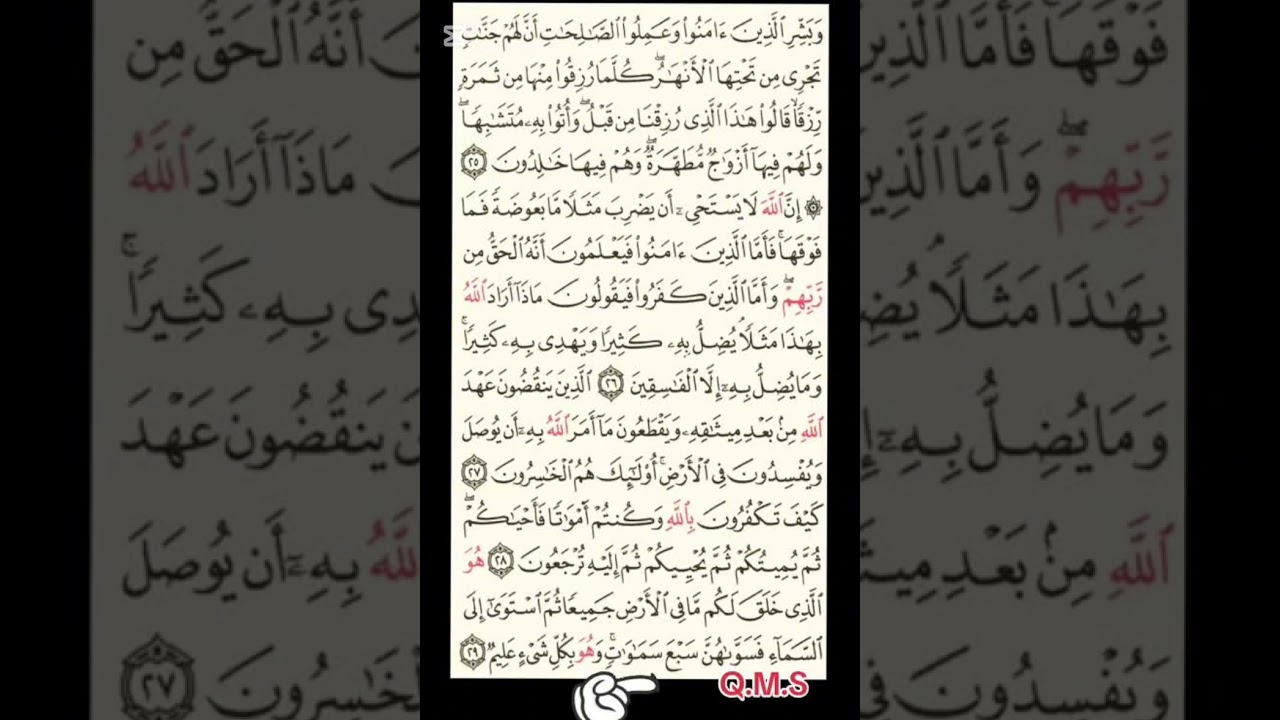 وَبَشِّرِ ٱلَّذِينَ ءَامَنُوا۟ وَعَمِلُوا۟ ٱلصَّـٰلِحَـٰتِ أَنَّ لَهُمْ جَنَّـٰتٍ
تَجْرِى مِن تَحْتِهَا ٱلْأَنْهَـٰرُ ۖ كُلَّمَا رُزِقُوا۟ مِنْهَا مِن ثَمَرَةٍ
رِّزْقًا ۙ قَالُوا۟ هَـٰذَا ٱلَّذِى رُزِقْنَا مِن قَبْلُ ۖ وَأُتُوا۟ بِهِۦ مُتَشَـٰبِهًا ۖ
وَلَهُمْ فِيهَآ أَزْوَٰجٌ مُّطَهَّرَةٌ ۖ وَهُمْ فِيهَا خَـٰلِدُونَ ٢٥
۞ إِنَّ ٱللَّهَ لَا يَسْتَحْىِۦٓ أَن يَضْرِبَ مَثَلًا مَّا بَعُوضَةً فَمَا
فَوْقَهَا ۚ فَأَمَّا ٱلَّذِينَ ءَامَنُوا۟ فَيَعْلَمُونَ أَنَّهُ ٱلْحَقُّ مِن
رَّبِّهِمْ ۖ وَأَمَّا ٱلَّذِينَ كَفَرُوا۟ فَيَقُولُونَ مَاذَآ أَرَادَ ٱللَّهُ
بِهَـٰذَا مَثَلًا ۘ يُضِلُّ بِهِۦ كَثِيرًا وَيَهْدِى بِهِۦ كَثِيرًا ۚ
وَمَا يُضِلُّ بِهِۦٓ إِلَّا ٱلْفَـٰسِقِينَ ٢٦ ٱلَّذِينَ يَنقُضُونَ عَهْدَ
ٱللَّهِ مِنۢ بَعْدِ مِيثَـٰقِهِۦ وَيَقْطَعُونَ مَآ أَمَرَ ٱللَّهُ بِهِۦٓ أَن يُوصَلَ
وَيُفْسِدُونَ فِى ٱلْأَرْضِ ۚ أُو۟لَـٰٓئِكَ هُمُ ٱلْخَـٰسِرُونَ ٢٧
كَيْفَ تَكْفُرُونَ بِٱللَّهِ وَكُنتُمْ أَمْوَٰتًا فَأَحْيَـٰكُمْ ۖ
ثُمَّ يُمِيتُكُمْ ثُمَّ يُحْيِيكُمْ ثُمَّ إِلَيْهِ تُرْجَعُونَ ٢٨ هُوَ
ٱلَّذِى خَلَقَ لَكُم مَّا فِى ٱلْأَرْضِ جَمِيعًا ثُمَّ ٱسْتَوَىٰٓ إِلَى
ٱلسَّمَآءِ فَسَوَّىٰهُنَّ سَبْعَ سَمَـٰوَٰتٍ ۚ وَهُوَ بِكُلِّ شَىْءٍ عَلِيمٌ ٢٩
Q.M.S